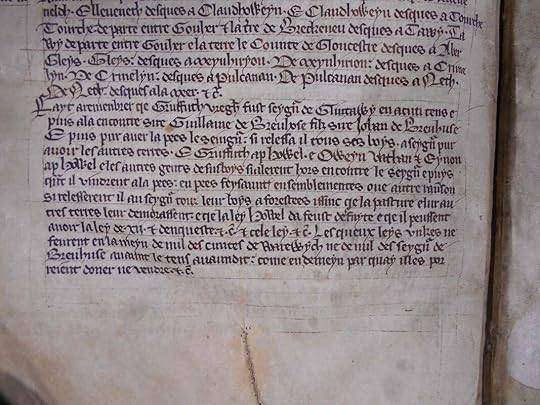 neldy. Elleueneth desques a Claudhoweyn. E Claudhoweyn desques a Tourche
Tourche departe entre Gouher & la tre de Bredreneu desques a Tawy. Ta
wy departe entre Gouher e la terre le Counte de Gloucestre desques a Aber
Gleys. Gleys: desques a Meynhiryon. De Meynhirion: desques a Crime
lyn. De Crimelyn: desques a Pulcanan. De Pulcanan desques a Neth.
De Neth. desques ala Meer. & c.
Fayt aremenbrer qe Griffith Vregh fust seygnr de Gluntawy en acun tens e
puis ala encontre sire Guillame de Breuhose fitz sire Johan de Breuhuse
E puis pur auer la pees le seingnr: si relessa il tous sez boys. a seygnr pur
auoir les autres terres. E Griffith ap howel. e Oweyn vathan & Eynon
ap howel e les autres gents de sus boys si alerent hors encontre le seygnr e puys
qe il vindrent ala pees: en pees feysaunt ensemblementes oue autre raunson
si relesserent il au seygnr tour leur boys a forestees issint qe la pasture e lur au
tres terres leur demurassent: e qe la ley howel da feust defayte e qe il peussent
auoir la ley de xii. & denqueste. & c. & tele ley. & c. Les queux leys
feurent en la meyn de nul des cuntes de Warewych ne de nul des seygnrs de
Breuhuse auaunt le tens auaundit: come en demeyn par quay illes por
reient doner ne vendre. & c.